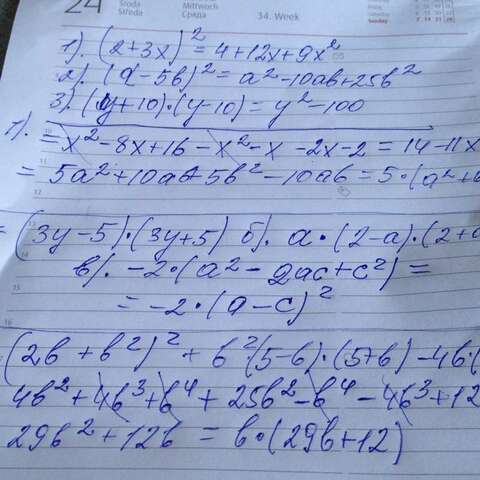 24 Środa Středa Mittwoch Среда 34. Week
1). (2+3x)² = 4+12x+9x²
2). (a-5b)² = a²-10ab+25b²
3). (y+10)·(y-10) = y²-100
1). = x²-8x+16-x²-x-2x-2 = 14-11x
= 5a²+10ab+5b²-10ab = 5·(a²+
= (3y-5)·(3y+5) б). a·(2-a)·(2+a
в). -2·(a²-2ac+c²) =
= -2·(a-c)²
(2b+b²)² + b²(5-b)·(5+b) - 4b·(
4b²+4b³+b⁴+25b²-b⁴-4b³+12
29b²+12b = b·(29b+12)